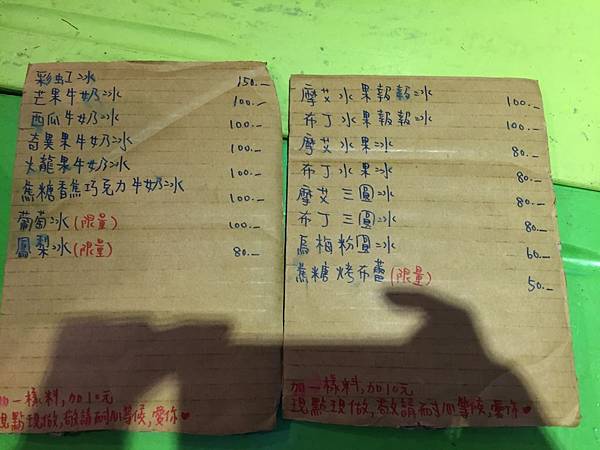 彩虹冰 150.-
芒果牛奶冰 100.-
西瓜牛奶冰 100.-
奇異果牛奶冰 100.-
火龍果牛奶冰 100.-
蕉糖香蕉巧克力牛奶冰
葡萄冰(限量) 100.-
鳳梨冰(限量) 80.-
加一樣料,加10元
現點現做,敬請耐心等候,愛你♥
摩艾水果報報冰 100.-
布丁水果報報冰 100.-
摩艾水果冰 80.-
布丁水果冰 80.-
摩艾三圓冰 80.-
布丁三圓冰 80.-
烏梅粉圓冰 60.-
蕉糖烤布蕾(限量) 50.-
加一樣料,加10元
現點現做,敬請耐心等候,愛你♥